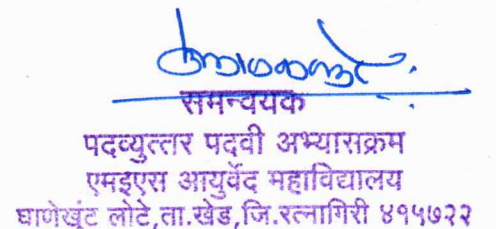 समन्वयक
पदव्युत्तर पदवी अभ्यासक्रम
एमइएस आयुर्वेद महाविद्यालय
घाणेखुंट लोटे,ता.खेड,जि.रत्नागिरी ४१५७२२